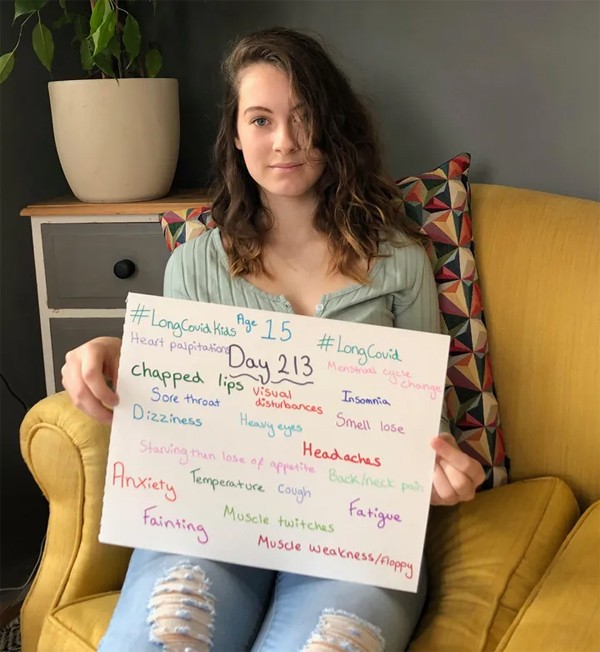 #LongCovidkids Age 15 #LongCovid
Heart palpitations Day 213 Menstrual cycle change
chapped lips Visual disturbances Insomnia
Sore throat
Dizziness Heavy eyes Smell lose
Starving then lose of appetite Headaches
Back/neck pain
Anxiety Temperature Cough
Fainting Muscle twitches Fatigue
Muscle weakness/floppy